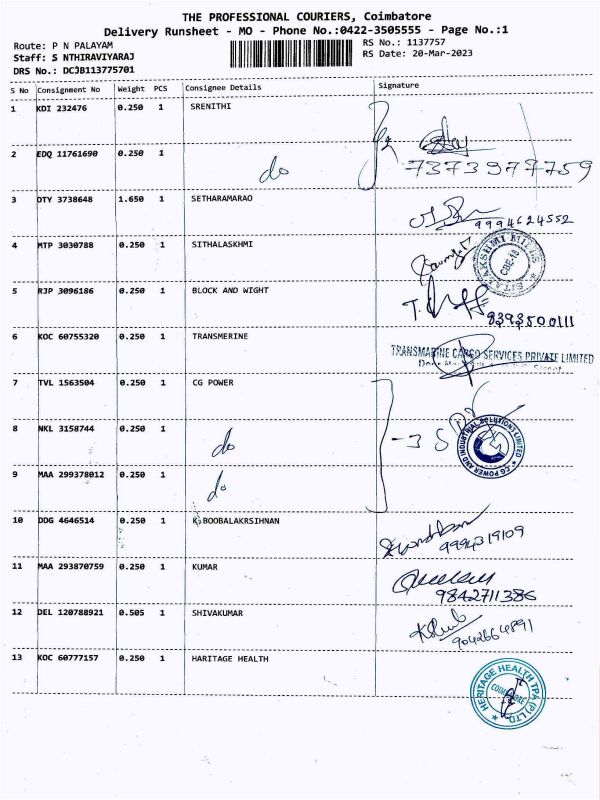 THE PROFESSIONAL COURIERS, Coimbatore
Delivery Runsheet - MO - Phone No.:0422-3505555 - Page No.:1
Route: P N PALAYAM
RS No.: 1137757
Staff: S NTHIRAVIYARAJ
RS Date: 20-Mar-2023
DRS No.: DCJB113775701
S No Consignment No Weight PCS Consignee Details Signature
1 KDI 232476 0.250 1 SRENITHI
2 EDQ 11761690 0.250 1 do 7373977759
3 OTY 3738648 1.650 1 SETHARAMARAO 9994624552
4 MTP 3030788 0.250 1 SITHALASKHMI
5 RJP 3096186 0.250 1 BLOCK AND WIGHT 8393500111
6 KOC 60755320 0.250 1 TRANSMERINE TRANSMARINE CARGO SERVICES PRIVATE LIMITED
7 TVL 1563504 0.250 1 CG POWER
8 NKL 3158744 0.250 1 do - 3 CG POWER AND INDUSTRIAL SOLUTIONS LIMITED
9 MAA 299378012 0.250 1 do
10 DDG 4646514 0.250 1 K BOOBALAKRSIHNAN 9994319109
11 MAA 293870759 0.250 1 KUMAR 9842711386
12 DEL 120788921 0.505 1 SHIVAKUMAR 9042664891
13 KOC 60777157 0.250 1 HARITAGE HEALTH HERITAGE HEALTH TPA (P) LTD.